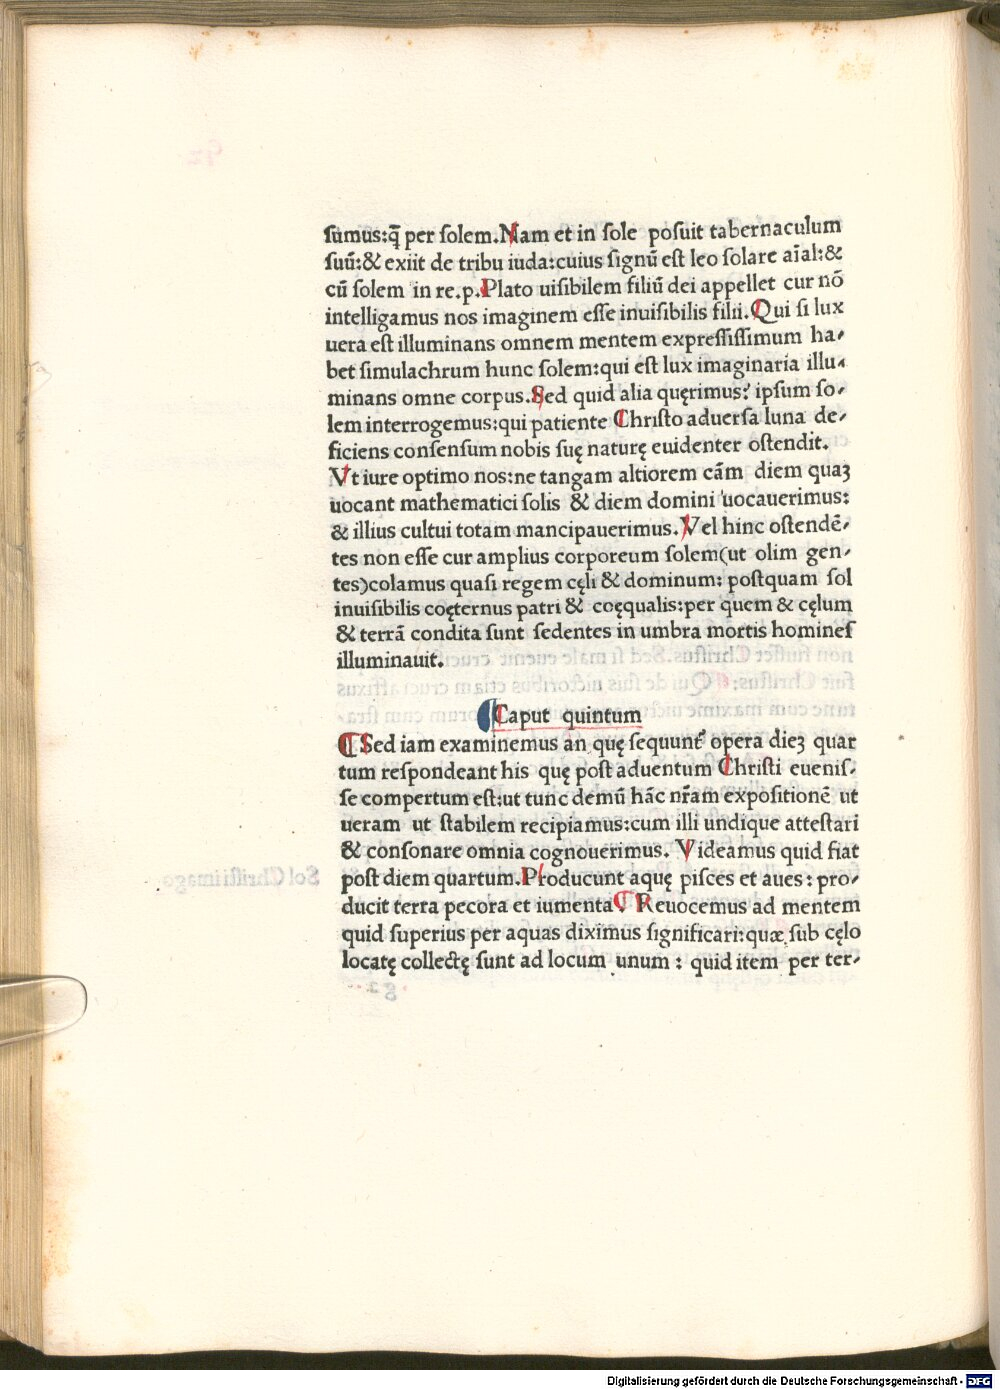 sumus:q̄ per solem.Nam et in sole posuit tabernaculum
suū:& exiit de tribu iuda:cuius signū est leo solare aīal:&
cū solem in re.p.Plato uisibilem filiū dei appellet cur nō
intelligamus nos imaginem esse inuisibilis filii.Qui si lux
uera est illuminans omnem mentem expressissimum ha-
bet simulachrum hunc solem:qui est lux imaginaria illu-
minans omne corpus.Sed quid alia quęrimus? ipsum so-
lem interrogemus:qui patiente Christo aduersa luna de-
ficiens consensum nobis suę naturę euidenter ostendit.
Vt iure optimo nos:ne tangam altiorem cām diem quaꝫ
uocant mathematici solis & diem domini uocauerimus:
& illius cultui totam mancipauerimus.Vel hinc ostendē-
tes non esse cur amplius corporeum solem(ut olim gen-
tes)colamus quasi regem cęli & dominum: postquam sol
inuisibilis coęternus patri & coęqualis:per quem & cęlum
& terrā condita sunt sedentes in umbra mortis homines
illuminauit.
Caput quintum
Sed iam examinemus an quę sequunt᷑ opera dieꝫ quar
tum respondeant his quę post aduentum Christi euenis-
se compertum est:ut tunc demū hāc nr̄am expositionē ut
ueram ut stabilem recipiamus:cum illi undique attestari
& consonare omnia cognouerimus. Videamus quid fiat
post diem quartum.Producunt aquę pisces et aues: pro-
ducit terra pecora et iumenta. Reuocemus ad mentem
quid superius per aquas diximus significari:quæ sub cęlo
locatę collectę sunt ad locum unum: quid item per ter-
Digitalisierung gefördert durch die Deutsche Forschungsgemeinschaft - DFG